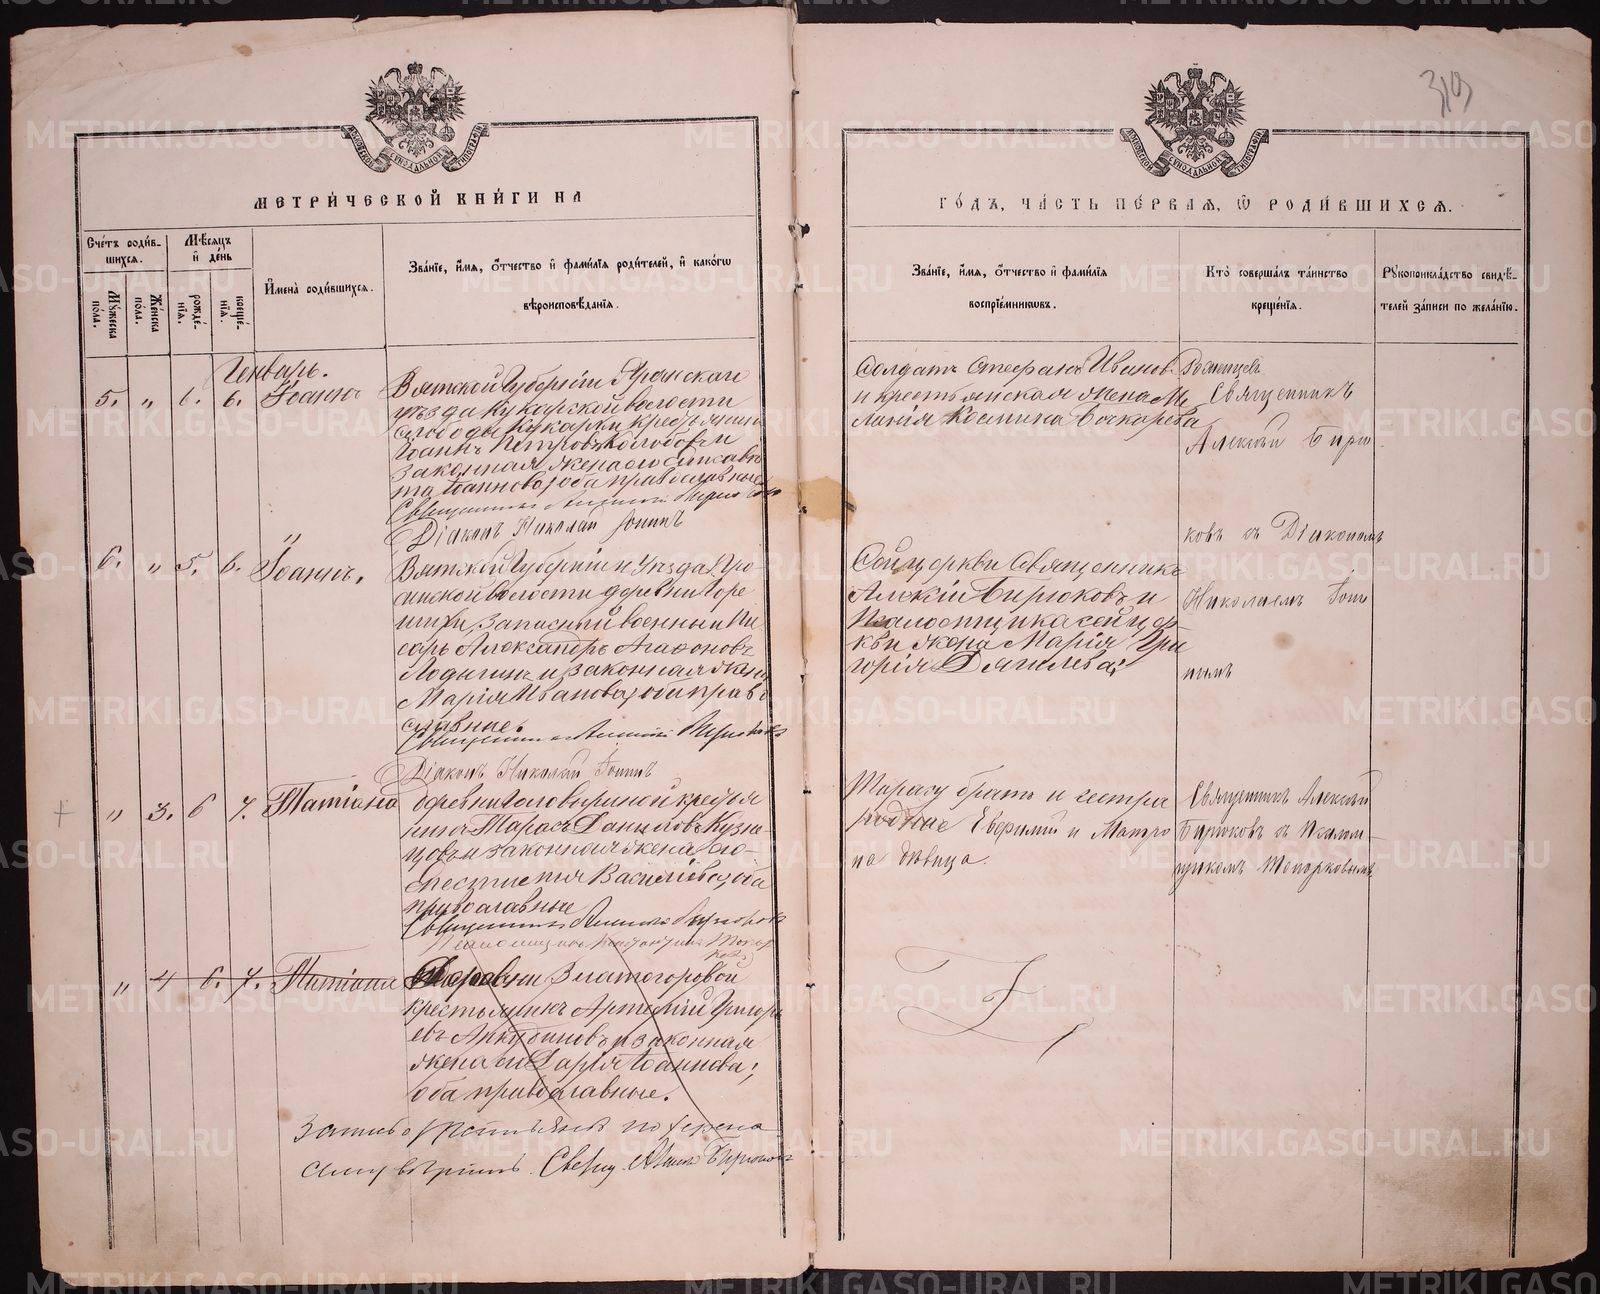 319
МОСКОВСКОЙ СѴНОДАЛЬНОЙ ТИПОГРАФІИ
МОСКОВСКОЙ СѴНОДАЛЬНОЙ ТИПОГРАФІИ
МЕТРИ́ЧЕСКОЙ КНИ́ГИ НА
ГО́ДЪ, ЧА́СТЬ ПЕ́РВАЯ, Ѡ РОДИ́ВШИХСЯ.
Сче́тъ роди́в-
шихся.
Мѣ́сяцъ
и де́нь
Му́жеска по́ла.
Же́нска по́ла.
рожде́-
нія.
креще́-
нія.
Имена̀ роди́вшихся.
Зва́ніе, и́мя, о́тчество и фами́лія роди́телей, и како́гѡ
вѣроисповѣ́данія.
Зва́ніе, и́мя, о́тчество и фами́лія
воспріе́мниковъ.
Кто̀ соверша́лъ та́инство
креще́нія.
Рукоприкла́дство свидѣ́-
телей за́писи по жела́нію.
Генварь.
5. " 1. 6. Іоаннъ
Вятской Губерніи Яранскаго
уѣзда Кукарской волости
слободы Кукарки крестьянинъ
Іоаннъ Петровъ и
законная жена его Елисаве
та Іоаннова, оба православные
Священникъ Алексій Бирюковъ
Діаконъ Николай Іонинъ
Солдатъ Стефанъ Иванов.
и крестьянская жена М
ланія Космина Бочкарева
Священникъ
Алексій Бирю
ковъ съ Діакономъ
Николаемъ Іони
нымъ
"
6. " 5. 6. Іоаннъ.
Вятской Губерніи и уѣзда, Тро
ицкой волости деревни Горе
Записной военный пи
сарь Александръ Агафоновъ
Лодыгинъ и законная жена
Марія Иванова, оба право
славные.
Священникъ Алексій Бирюковъ
Діаконъ Николай Іонинъ
Сей церкви Священникъ
Алексій Бирюковъ и
Псаломщика сей цер
кви жена Марія Гри
горія Дягилева;
" 3. 6 7. Татіана
деревни крестья
нинъ Тарасъ Даниловъ Кузне
цовъ и законная жена его
Васильева, оба
православные
Священникъ Алексій Бирюковъ
Псаломщикъ Топор
ковъ
Тарасу братъ и сестра
родные Евфимій и Матро
на дѣвица.
Священникъ Алексій
Бирюковъ съ Псалом-
щикомъ Топорковымъ
" 4 6. 7. Татіана
Деревни Златогоровой
крестьянинъ Артемій Григорь
евъ и законная
жена его Дарія Іоаннова;
оба православные.
Алексій Бирюковъ
METRIKI.GASO-URAL.RU